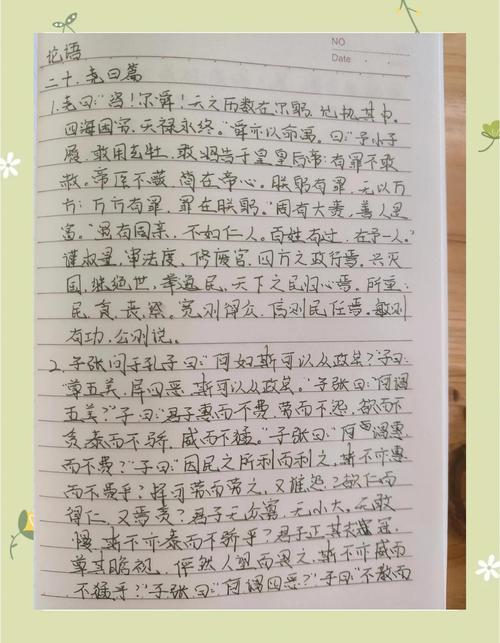 NO
Date
论语
二十.尧曰篇
1.尧曰:"咨!尔舜!天之历数在尔躬,允执其中。
四海困穷,天禄永终。"舜亦以命禹。曰:"予小子
履,敢用玄牡,敢昭告于皇皇后帝:有罪不敢
赦。帝臣不蔽,简在帝心。朕躬有罪,无以万
方;万方有罪,罪在朕躬。"周有大赉,善人是
富。"虽有周亲,不如仁人。百姓有过,在予一人。"
谨权量,审法度,修废官,四方之政行焉。兴灭
国,继绝世,举逸民,天下之民归心焉。所重:
民、食、丧、祭。宽则得众,信则民任焉。敏则
有功,公则说。
2.子张问于孔子曰:"何如斯可以从政矣?"子曰:
"尊五美,屏四恶,斯可以从政矣。"子张曰:"何谓
五美?"子曰:"君子惠而不费,劳而不怨,欲而不
贪,泰而不骄,威而不猛。"子张曰:"何谓惠
而不费?"子曰:"因民之所利而利之,斯不亦惠
而不费乎?择可劳而劳之,又谁怨?欲仁而
得仁,又焉贪?君子无众寡,无小大,无敢
慢,斯不亦泰而不骄乎?君子正其衣冠,
尊其瞻视,俨然人望而畏之,斯不亦威而
不猛乎?"子张曰:"何谓四恶?"子曰:"不教而